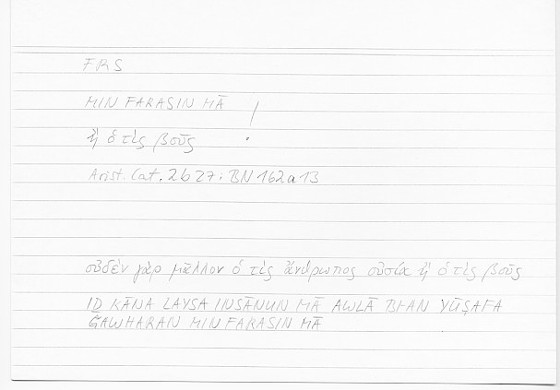 FRS
MIN FARASIN MĀ !
ἢ ὁ τὶς βοῦς
Arist. Cat. 2b27; BN 162a13
οὐδὲν γὰρ μᾶλλον ὁ τὶς ἄνθρωπος οὐσία ἢ ὁ τὶς βοῦς
ID KĀNA LAYSA INSĀNUN MĀ AWLĀ BI-AN YŪṢAFA
ǦAWHARAN MIN FARASIN MĀ